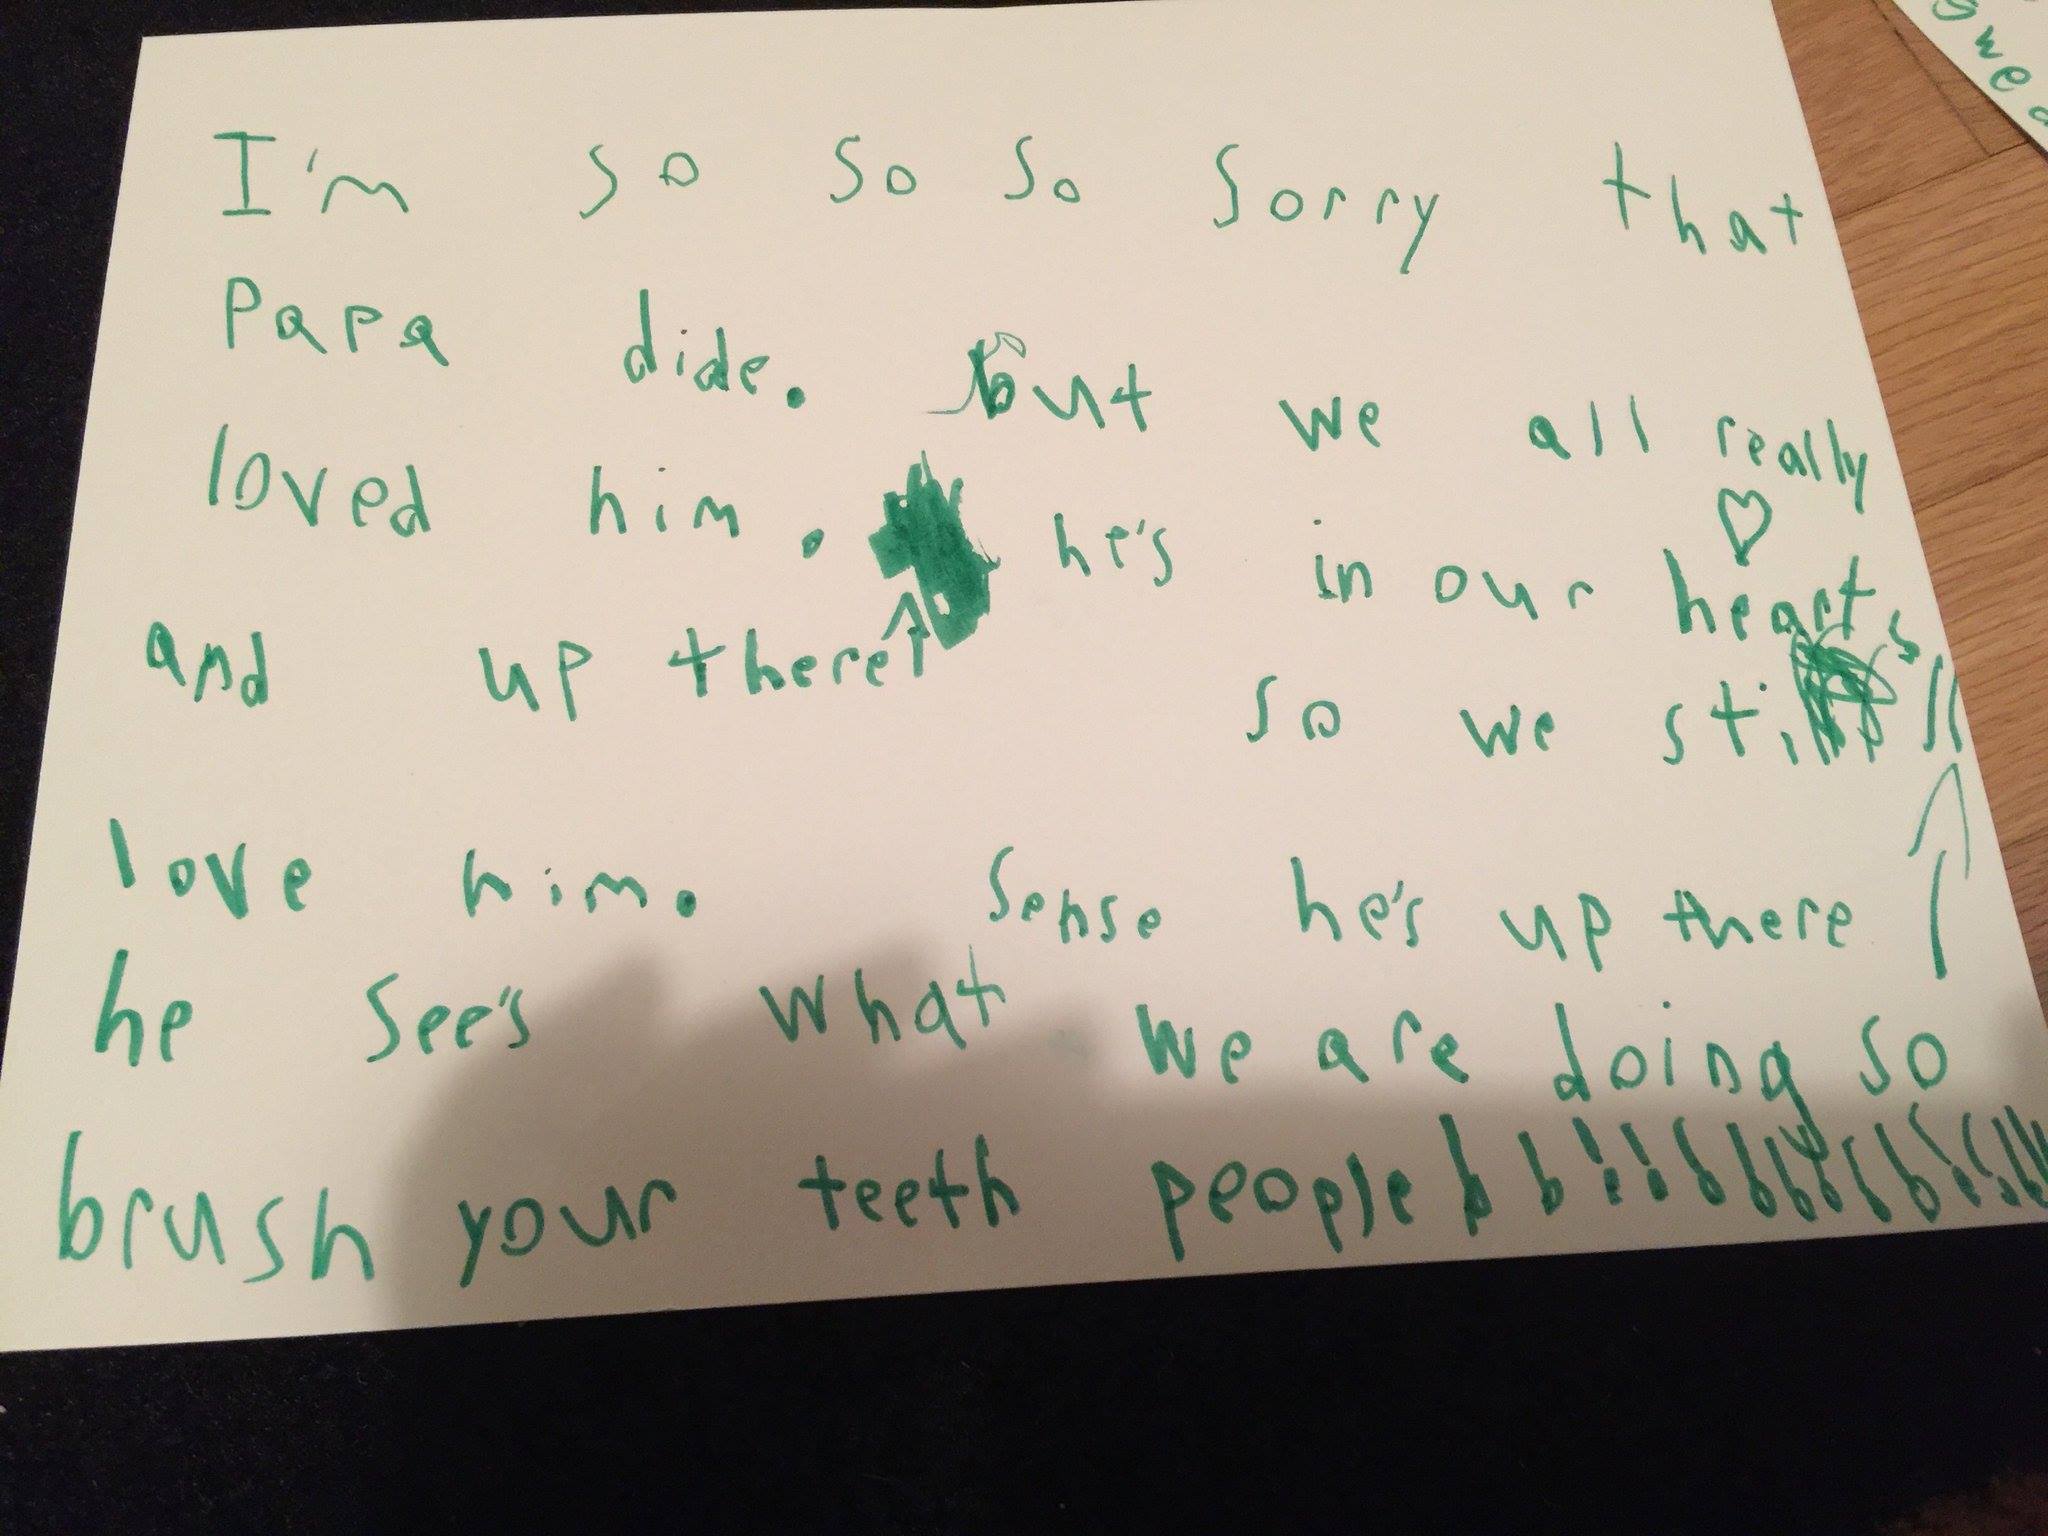 I'm so so so sorry that
Papa dide. but we all really
loved him. he's in our hearts
and up there↑ so we still
love him. Sense he's up there ↑
he see's what we are doing so
brush your teeth people!!!!!!!!!!!!!!
swe